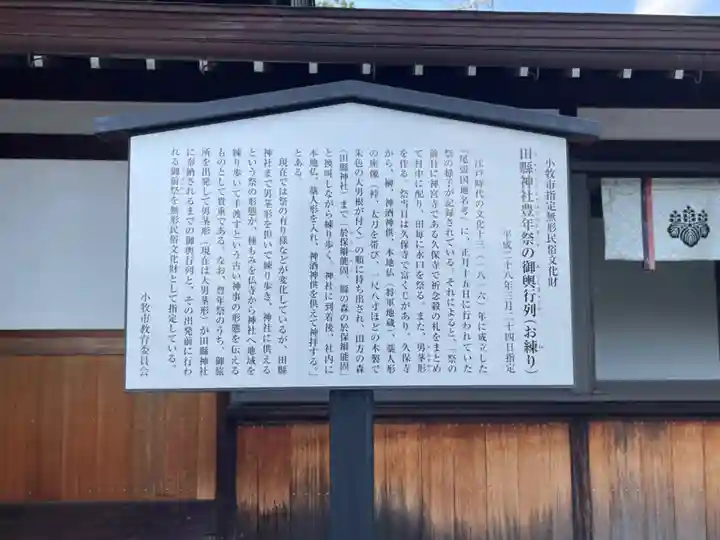 小牧市指定無形民俗文化財
田縣神社豊年祭の御輿行列(お練り)
平成二十八年三月二十四日指定
江戸時代の文化十三(一八一六)年に成立した
『尾張国地名考』に、正月十五日に行われていた
祭の様子が記録されている。それによると、「祭の
前日に神宮寺である久保寺で祈念穀の札をまとめ
て村中に配り、田毎に水口を祭る。また、男茎形
を作る。祭当日は久保寺で富くじがあり、久保寺
から、榊、神酒神供、本地仏(将軍地蔵)、藁人形
の座像(裃、太刀を帯び、一尺八寸ほどの木製で
朱色の大男根が付く)の順に持ち出され、田方の森
(田縣神社)まで「於保爾能固、縣の森の於保爾能固」
と喚叫しながら練り歩く。神社に到着後、社内に
本地仏、藁人形を入れ、神酒神供を供えて神拝する。」
とある。
現在では祭の有り様などが変化しているが、田縣
神社まで男茎形を担いで練り歩き、神社に供える
という祭の形態が、種もみを仏寺から神社へ地域を
練り歩いて手渡すという古い神事の形態を伝える
ものとして貴重である。なお、豊年祭のうち、御旅
所を出発して男茎形(現在は大男茎形)が田縣神社
に奉納されるまでの御輿行列と、その出発前に行わ
れる御前祭を無形民俗文化財として指定している。
小牧市教育委員会